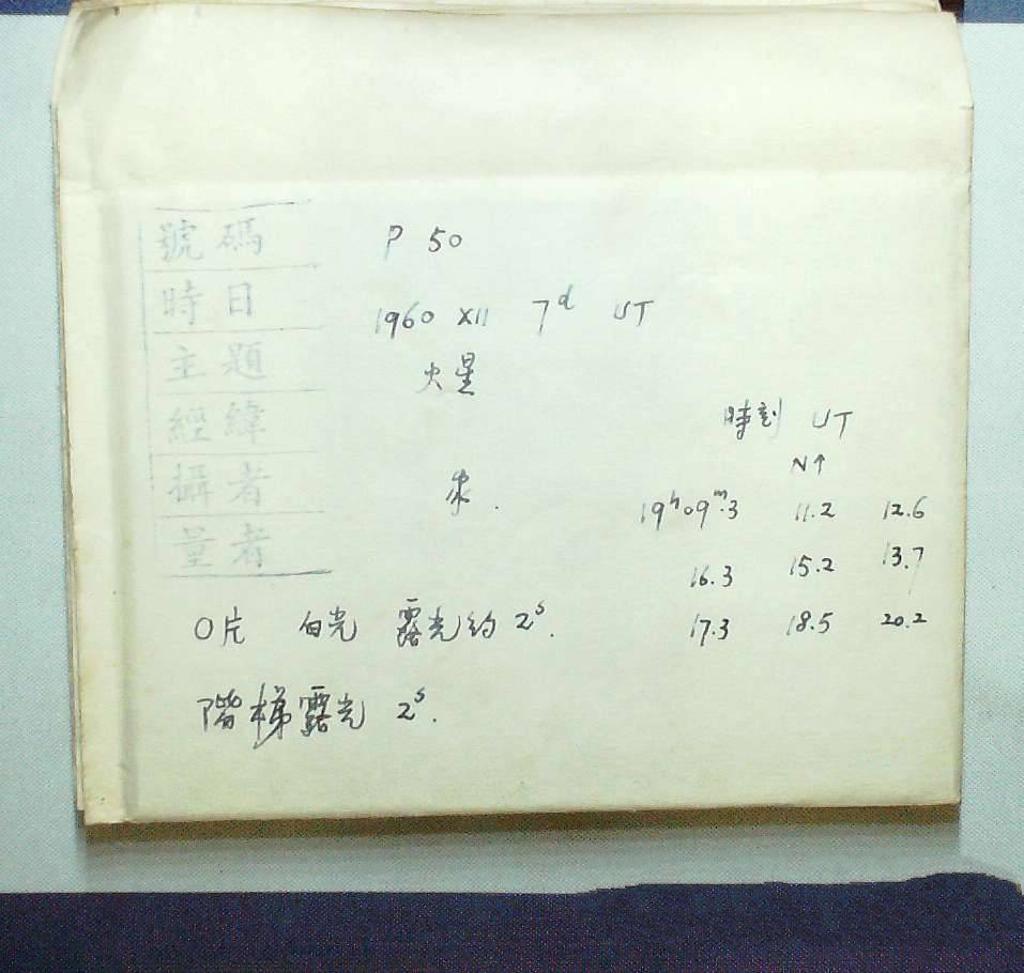 號碼 P 50
時日 1960 XII 7d UT
主題 火星
經緯
攝者
量者
時刻 UT
N↑
19h09m.3 11.2 12.6
16.3 15.2 13.7
17.3 18.5 20.2
O片 白光 露光約 2s.
階梯露光 2s.